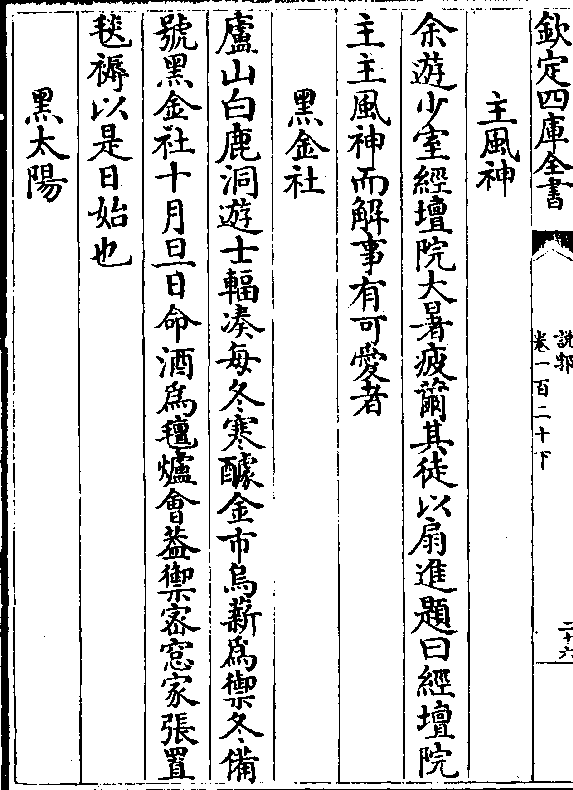 欽定四庫全書
説郛
卷一百二十下
二十六
主風神
余遊少室經壇院大暑疲薾其徒以扇進題曰經壇院
主主風神而解事有可愛者
黑金社
廬山白鹿洞遊士輻湊每冬寒醵金市烏薪為禦冬備
號黑金社十月旦日命酒為氊爐會葢禦寒窓家張置
毯褥以是日始也
黑太陽